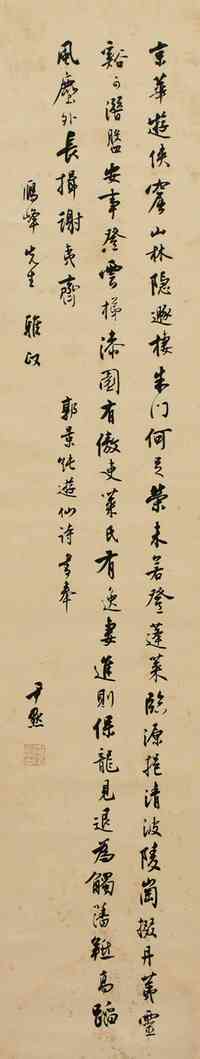 京華遊俠窟山林隐遯棲朱门何足榮未若登蓬萊臨源挹清波陵崗掇丹荑靈
谿可潛盤安事登雲梯漆園有傲吏萊氏有逸妻進則保龍見退為觸藩羝高蹈
風塵外長揖謝夷齊 郭景純遊仙诗書奉
峰先生雅政 尹默